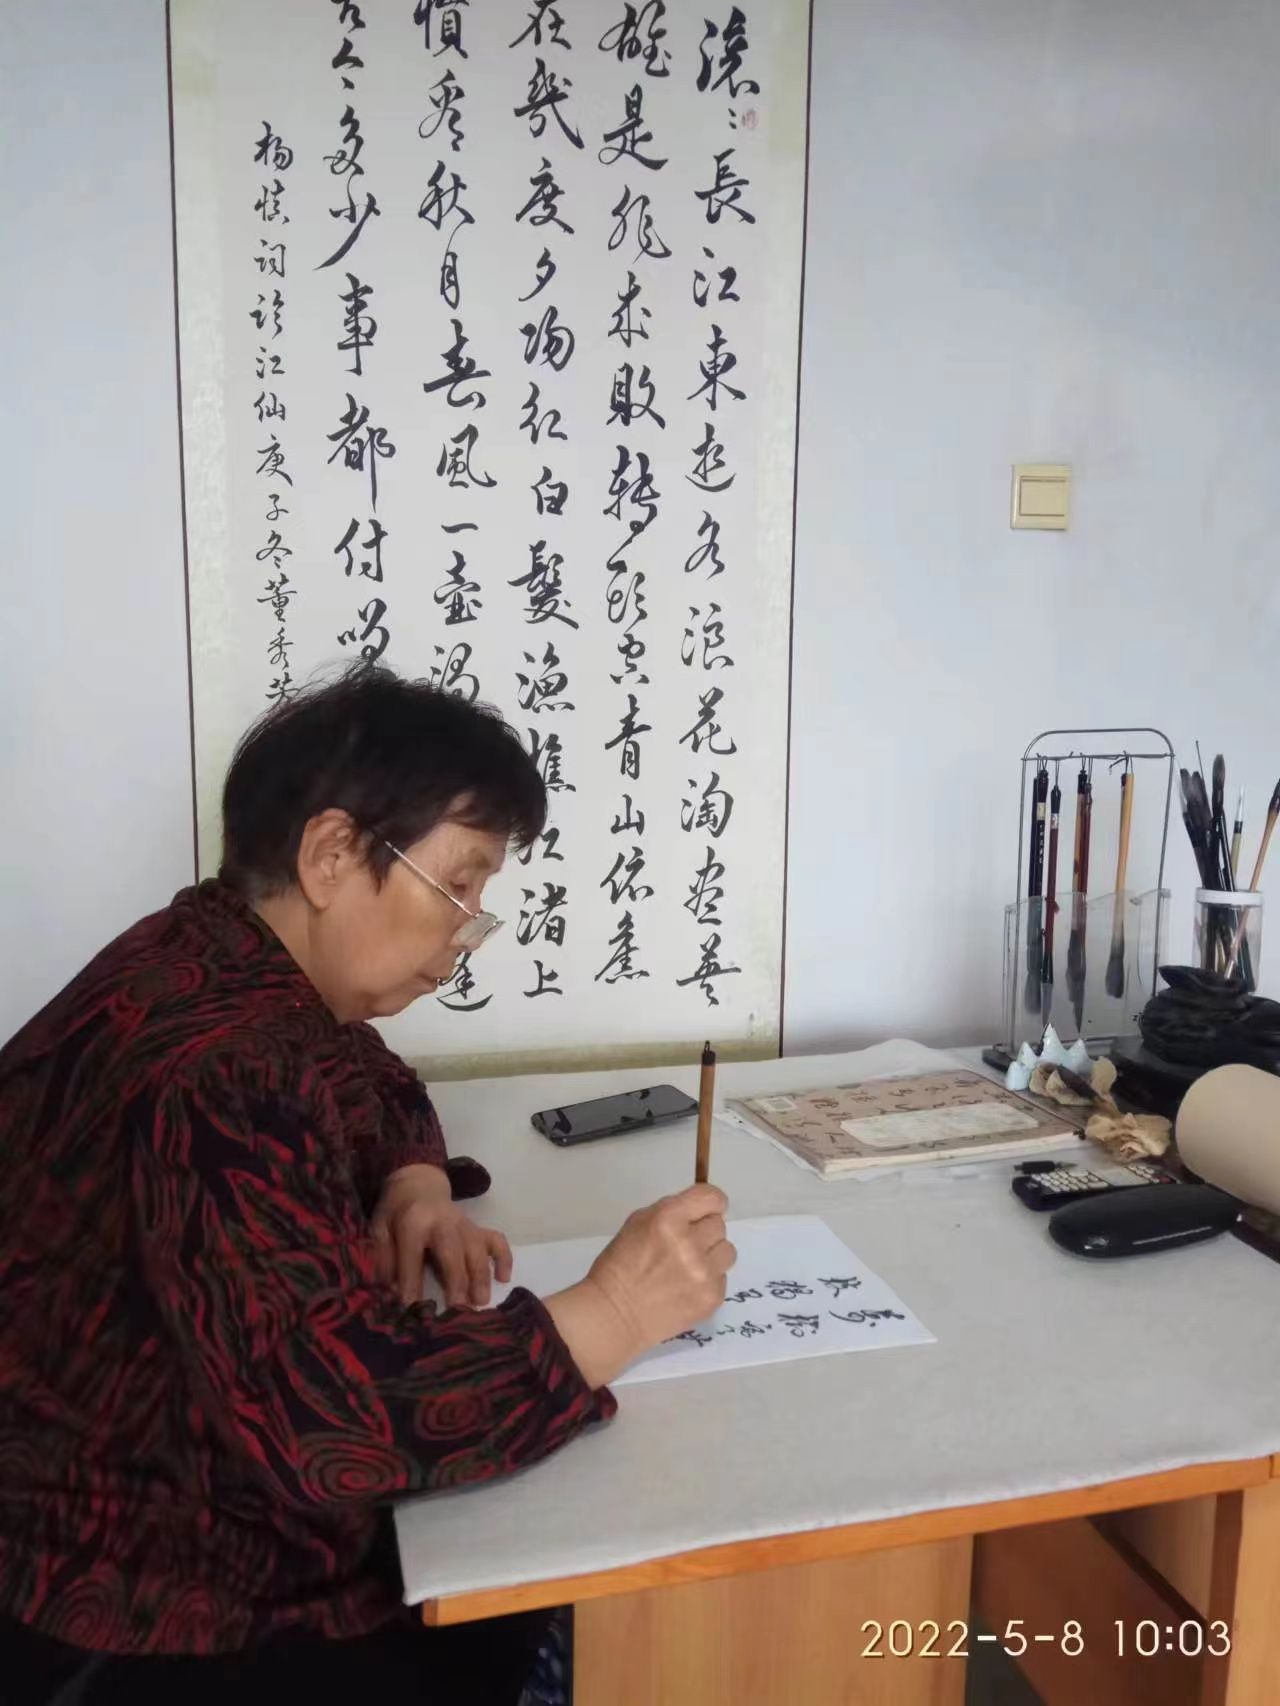 滚滚長江東逝水浪花淘盡英
雄是非成敗轉頭空青山依舊
在幾度夕陽紅白髮漁樵江渚上
慣看秋月春風一壺濁逢
古今多少事都付笑
杨慎词临江仙庚子冬董秀
2022-5-8 10:03